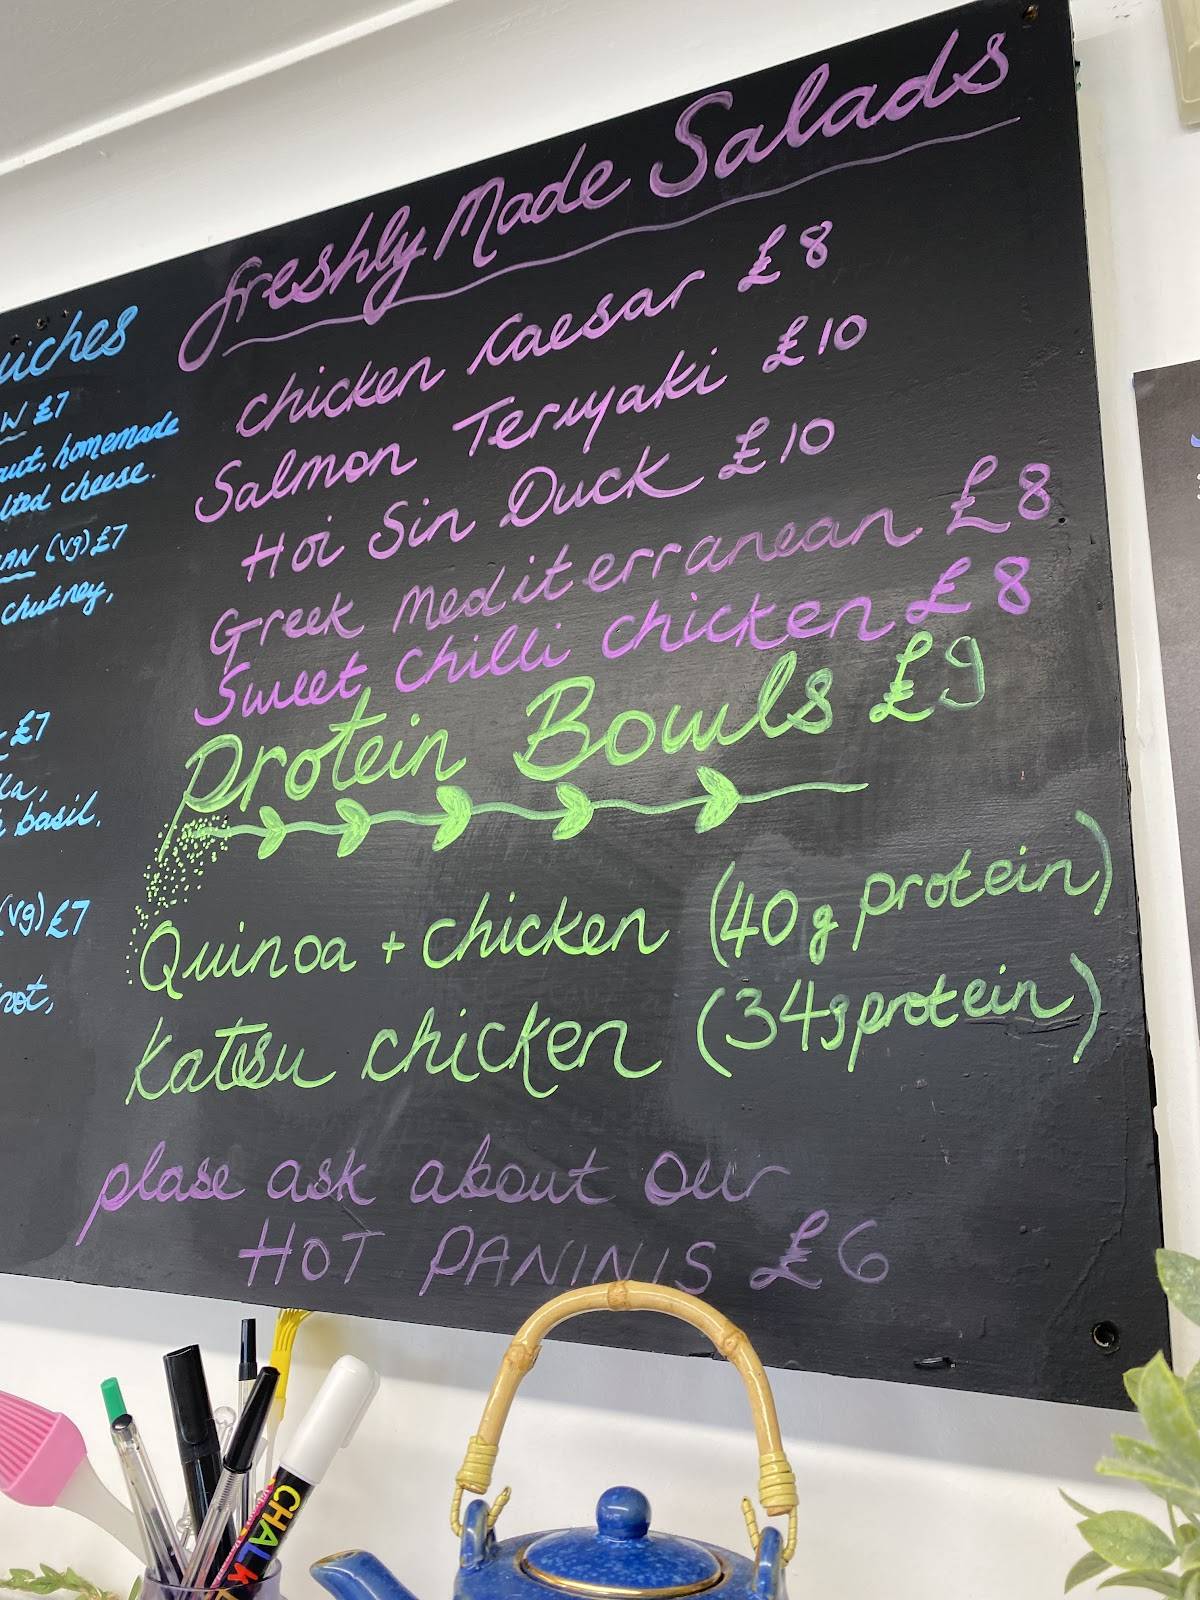 Freshly Made Salads
Chicken Caesar £8
Salmon Teriyaki £10
Hoi Sin Duck £10
Greek Mediterranean £8
Sweet Chilli Chicken £8
Protein Bowls £9
Quinoa + chicken (40g protein)
Katsu chicken (34g protein)
plase ask about our
HOT PANINIS £6
£7
homemade
cheese.
(vg) £7
chutney,
£7
basil.
(vg) £7
CHALK